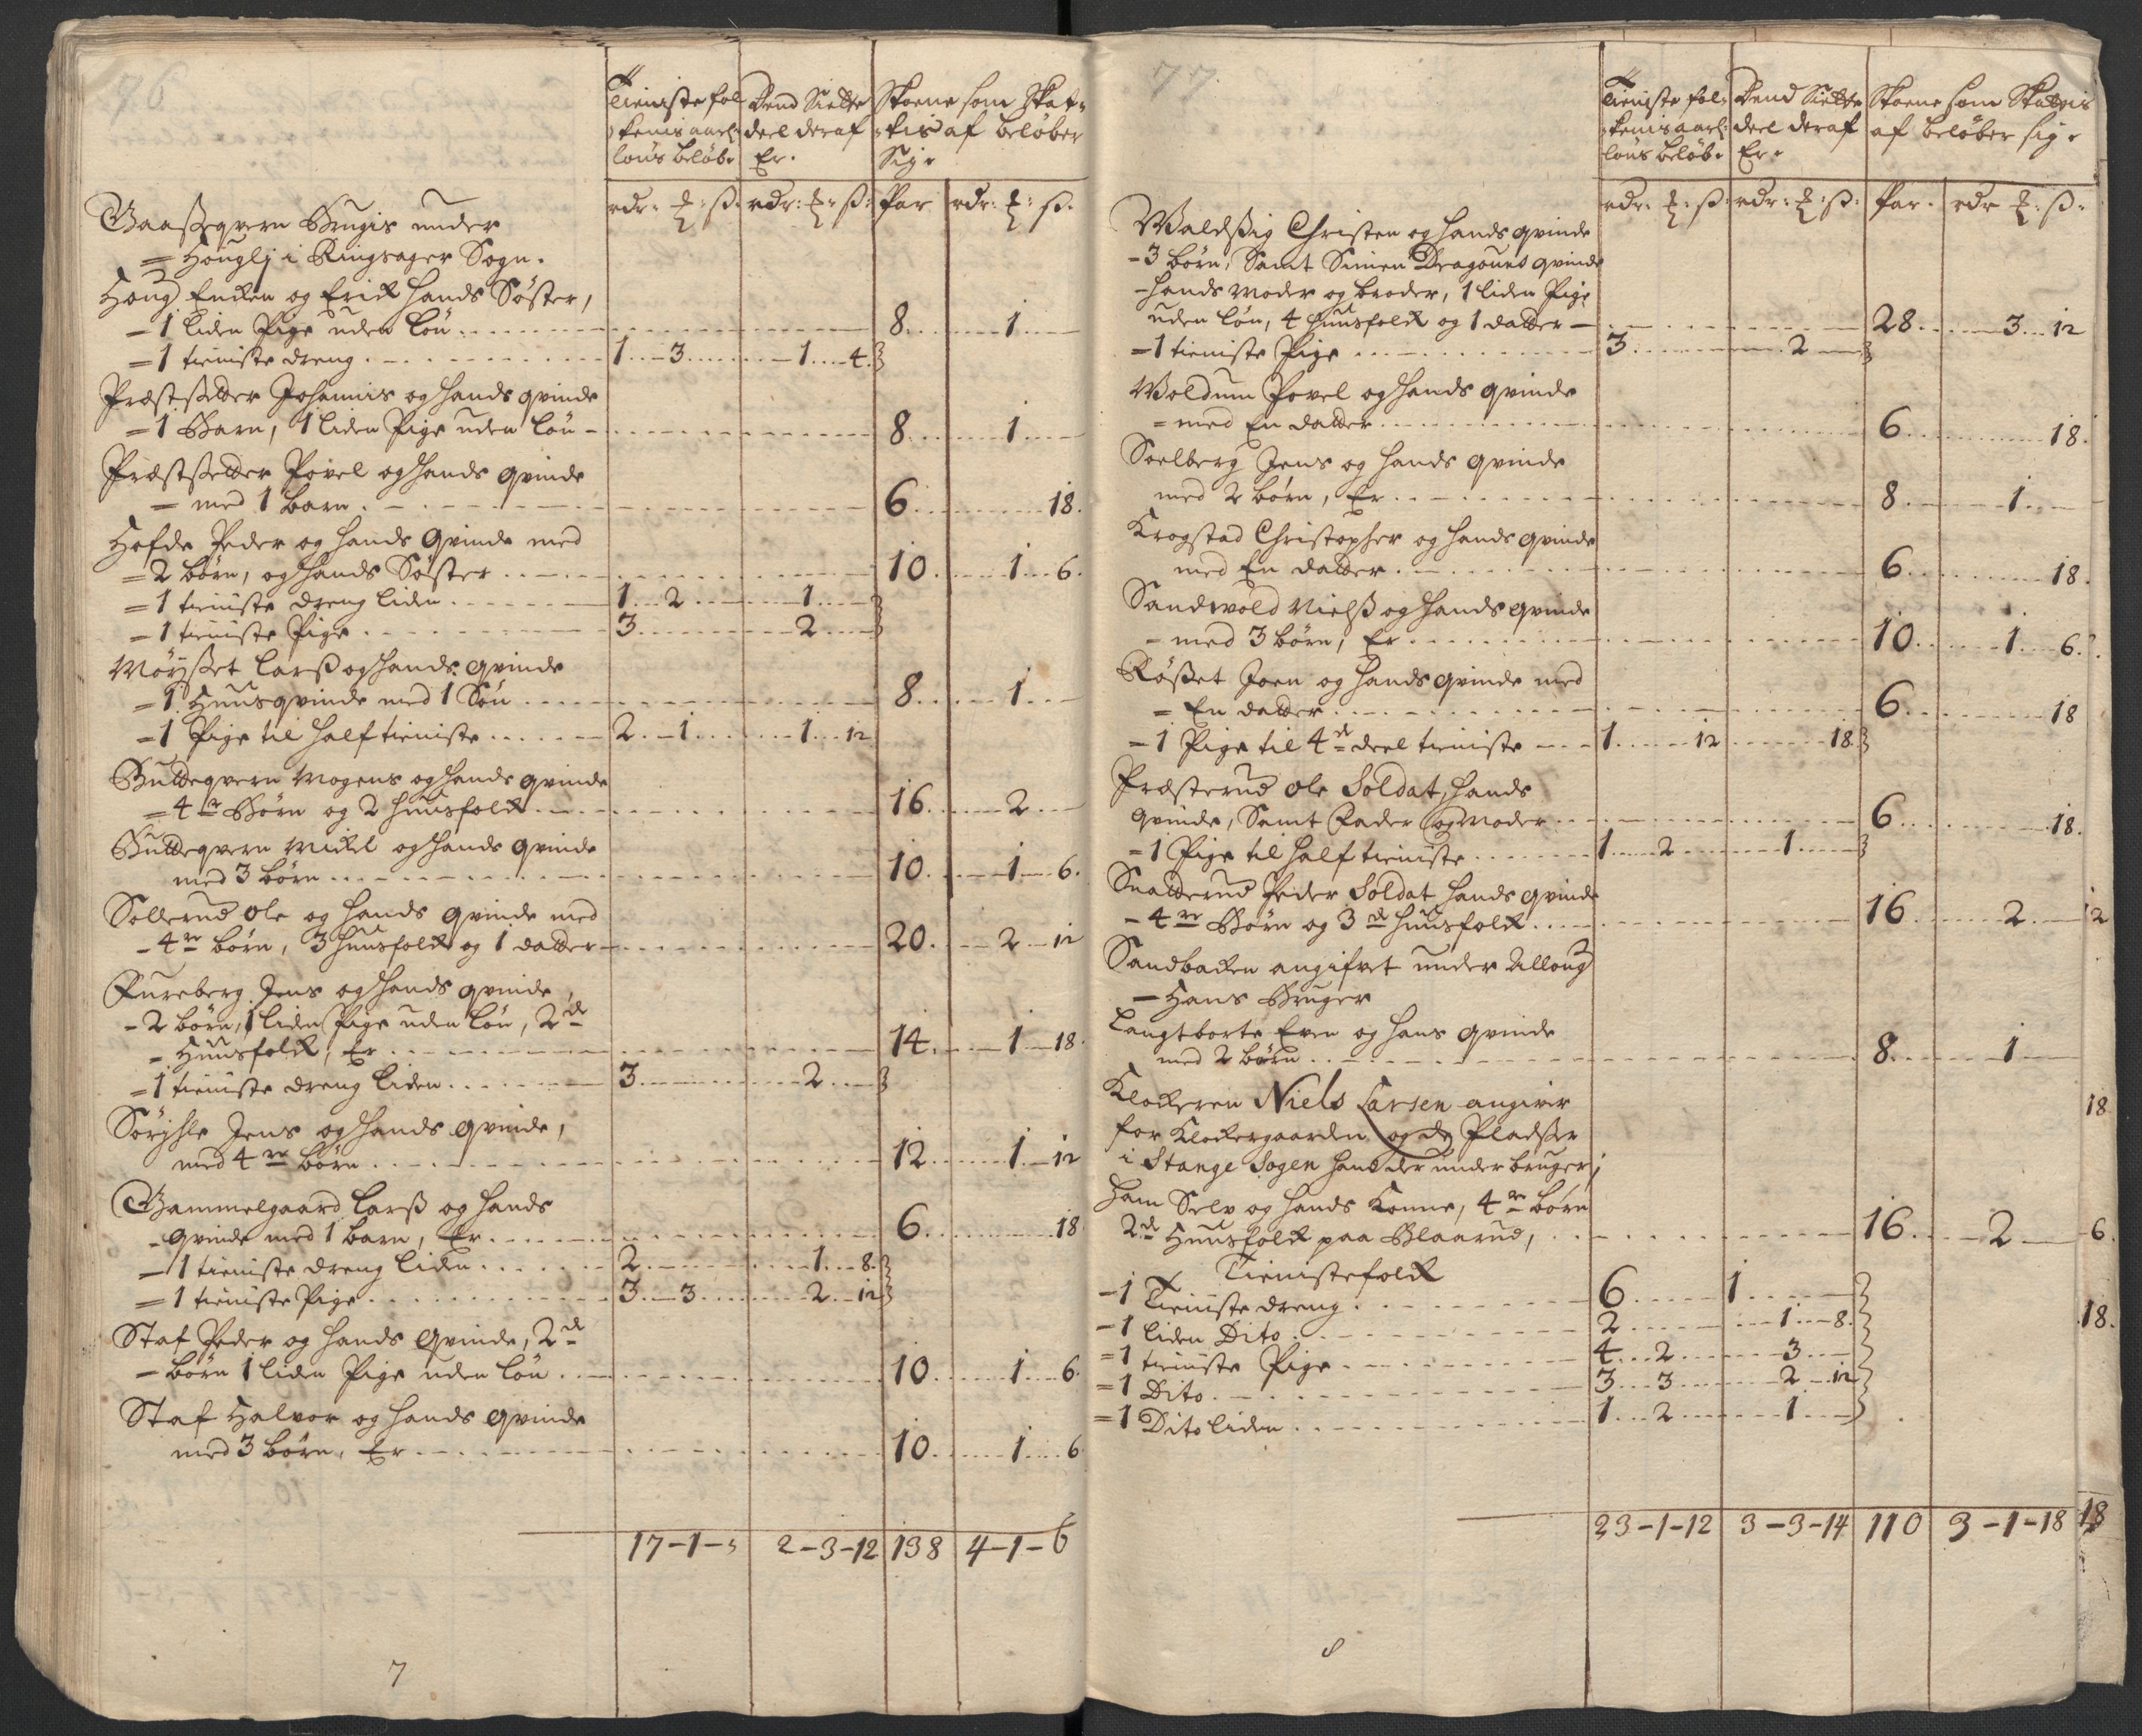 76
Tieniste fol Dend Siette Skoene som Skat-
kenis aarl: deel deraf kis af beløber
løns beløb. Er. Sig.
rdr: ß. rdr: ß: Par rdr: ß.
Gaasseqvern Brugis under
= Houglj i Ringsager Sogn.
Houg Encken og Erick hands Søster,
- 1 liden Pige uden løn 8 1
= 1 tieniste dreng 1 3 1 4
Præstsetter Johannis og hands qvinde
= 1 Barn, 1 liden Pige uden løn 8 1
Præstsetter Povel og hands qvinde
= med 1 barn 6 18
Hofde Peder og hands Qvinde med
= 2 børn, og hands Søster 10 1 6
= 1 tieniste dreng liden 1 2 1
- 1 tieniste Pige 3 2
Møysset Larß og hands qvinde
- 1 Huusqvinde med 1 Søn 8 1
- 1 Pige til half tieniste 2 1 1 12
Butteqvern Mogens og hands qvinde
= 4re Børn og 2 huusfolck 16 2
Butteqvern Mickel og hands qvinde
med 3 børn 10 1 6
Sollerud Ole og hands qvinde med
- 4re børn, 3 huusfolck og 1 datter 20 2 12
Fureberg Jens og hands qvinde
- 2 børn, 1 liden Pige uden løn, 2de
= Huusfolck, Er 14 1 18
= 1 tieniste dreng liden 3 2
Sørgsle Jens og hands qvinde,
med 4re børn 12 1 12
Gammelgaard Larß og hands
- qvinde med 1 barn, Er 6 18
- 1 tieniste dreng liden 2 1 8
= 1 tieniste Pige 3 3 2 12
Staf Peder og hands Qvinde, 2de
- børn 1 liden Pige uden løn 10 1 6
Staf Halvor og hands qvinde
med 3 børn, Er 10 1 6
17-1-3 2-3-12 138 4-1-6
7
77
Tieniste fol- Dend Siette Skoene som Skattis
kenis aarl: deel deraf af beløber sig.
løns beløb. Er.
rdr: ß: rdr: ß: Par. rdr ß.
Waldsig Christen og hands qvinde
- 3 børn, Samt Simen Dragouns qvinde
- hands Moder og broder, 1 liden Pige
uden løn, 4 huusfolck og 1 datter 28 3 12
= 1 tieniste Pige 3 2
Woldum Povel og hands qvinde
= med En datter 6 18
Soelberg Jens og hands qvinde
med 2 børn, Er 8 1
Krogstad Christopher og hands qvinde
med En datter 6 18
Sandwold Nielß og hands qvinde
- med 3 børn, Er 10 1 6
Røsset Joen og hands qvinde med
= En datter 6 18
- 1 Pige til 4de deel tieniste 1 12 18
Præsterud Ole Soldat, hands
qvinde, Samt Fader og Moder 6 18
= 1 Pige til half tieniste 1 2 1
Snatterud Peder Soldat hands qvinde
- 4re Børn og 3de huusfolck 16 2 12
Sandbacken angifvet under Alloug
- Hans Bruger
Langtborte Even og hans qvinde
med 2 børn 8 1
Klockeren Niels Larsen angiver 18
for Klockergaarden og de Pladser
i Stange Sogen hand der under bruger;
Ham Selv og hands Konne, 4re børn
2de Huusfolck paa Blaarud, 16 2 6
Tienistefolck
- 1 Tieniste dreng 6 1
- 1 liden Dito 2 1 8 18
= 1 tieniste Pige 4 2 3
= 1 Dito 3 3 2 12
= 1 Dito liden 1 2 1
23-1-12 3-3-14 110 3-1-18 18
8